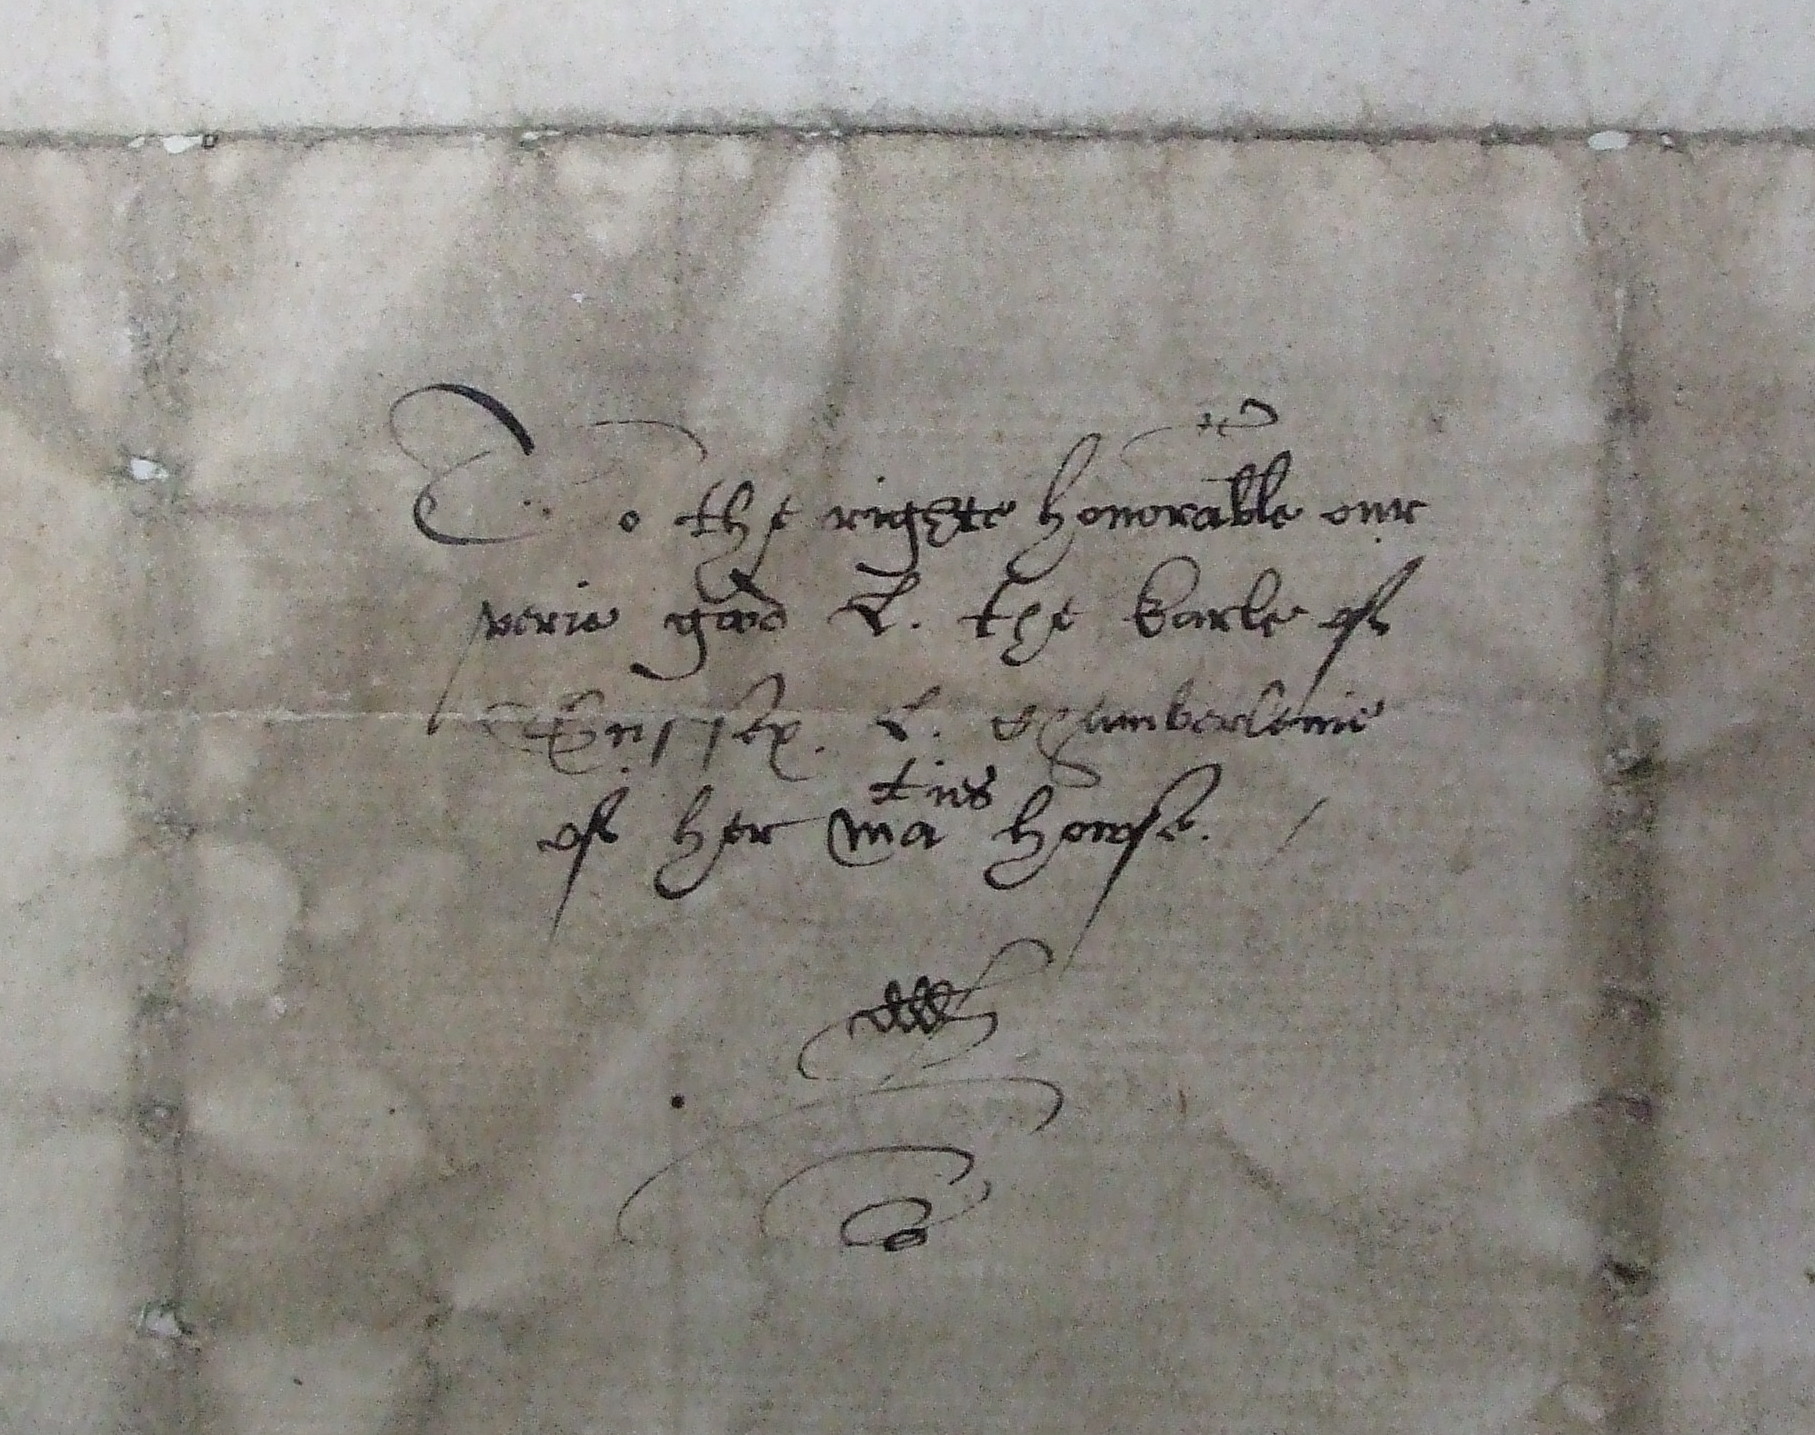 To the righte honorable our
verie good L. the Earle of
Sussex. L. Chamberleine
of her ma ties howse.